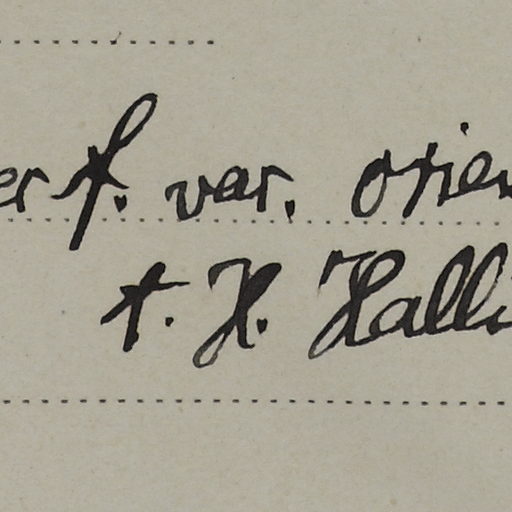 er f. var. orien
t. H. Halli